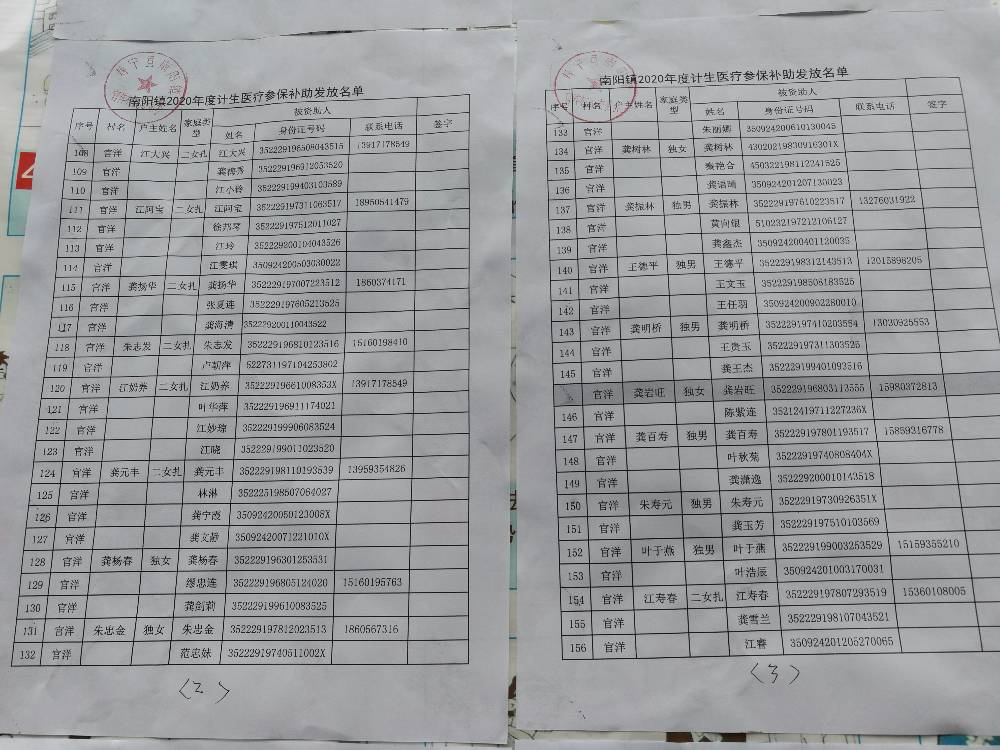 南阳镇2020年度计生医疗参保补助发放名单
序号 村名 户主姓名 家庭类型 被资助人 签字
姓名 身份证号码 联系电话
108 官洋 江大兴 二女扎 江大兴 352229196508043515 13917178549
109 官洋 352229196912053520
110 官洋 江小铃 352229199403103589
111 官洋 江阿宝 二女扎 江阿宝 352229197311063517 18950541479
112 官洋 徐邦琴 352229197512011027
113 官洋 江玲 352229200104043526
114 官洋 江雯琪 350924200503030022
115 官洋 龚扬华 二女扎 龚扬华 352229197007223512 1860374171
116 官洋 张夏连 352229197605213525
117 官洋 龚海清 352229200110043522
118 官洋 朱志发 二女扎 朱志发 352229196810123516 15160198410
119 官洋 卢朝萍 522731197104253802
120 官洋 江奶养 二女扎 江奶养 35222919661008353X 13917178549
121 官洋 叶华萍 352229196911174021
122 官洋 江妙琼 352229199906083524
123 官洋 江晓 352229199011023520
124 官洋 龚元丰 二女扎 龚元丰 352229198110193539 13959354826
125 官洋 林淋 352225198507064027
126 官洋 龚宁霞 35092420050123008X
127 官洋 龚文静 35092420071221010X
128 官洋 龚杨春 独女 龚杨春 352229196301253531
129 官洋 缪忠连 352229196805124020 15160195763
130 官洋 龚剑莉 352229199610083525
131 官洋 朱忠金 独女 朱忠金 352229197812023513 1860567316
132 官洋 范忠妹 35222919740511002X
<2>
南阳镇2020年度计生医疗参保补助发放名单
序号 村名 户主姓名 家庭类型 被资助人
姓名 身份证号码 联系电话 签字
133 官洋 朱丽娜 350924200610130045
134 官洋 龚树林 独女 龚树林 43020219830916301X
135 官洋 秦艳合 450322198112241525
136 官洋 龚语晴 350924201207130023
137 官洋 龚振林 独男 龚振林 352229197610223517 13276031922
138 官洋 黄向银 510232197212106127
139 官洋 龚鑫杰 350924200401120035
140 官洋 王德平 独男 王德平 352229198312143513 13015898205
141 官洋 王文玉 352229198508183525
142 官洋 王任羽 350924200902280010
143 官洋 龚明桥 独男 龚明桥 352229197410203554 13030925553
144 官洋 王贵玉 352229197311303525
145 官洋 龚王杰 352229199401093516
官洋 龚岩旺 独女 龚岩旺 352229196803113555 15980372813
146 官洋 陈紫连 35212419711227236X
147 官洋 龚百寿 独男 龚百寿 352229197801193517 15859316778
148 官洋 叶秋菊 35222919740808404X
149 官洋 龚潇逸 352229200010143518
150 官洋 朱寿元 独男 朱寿元 35222919730926351X
151 官洋 龚玉芳 352229197510103569
152 官洋 叶于燕 独男 叶于燕 352229199003253529 15159355210
153 官洋 叶浩辰 350924201003170031
154 官洋 江寿春 二女扎 江寿春 352229197807293519 15360108005
155 官洋 龚雪兰 352229198107043521
156 官洋 江睿 350924201205270065
<3>